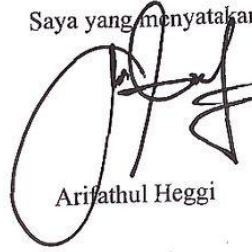 Saya yang menyatakan
Arifathul Heggi